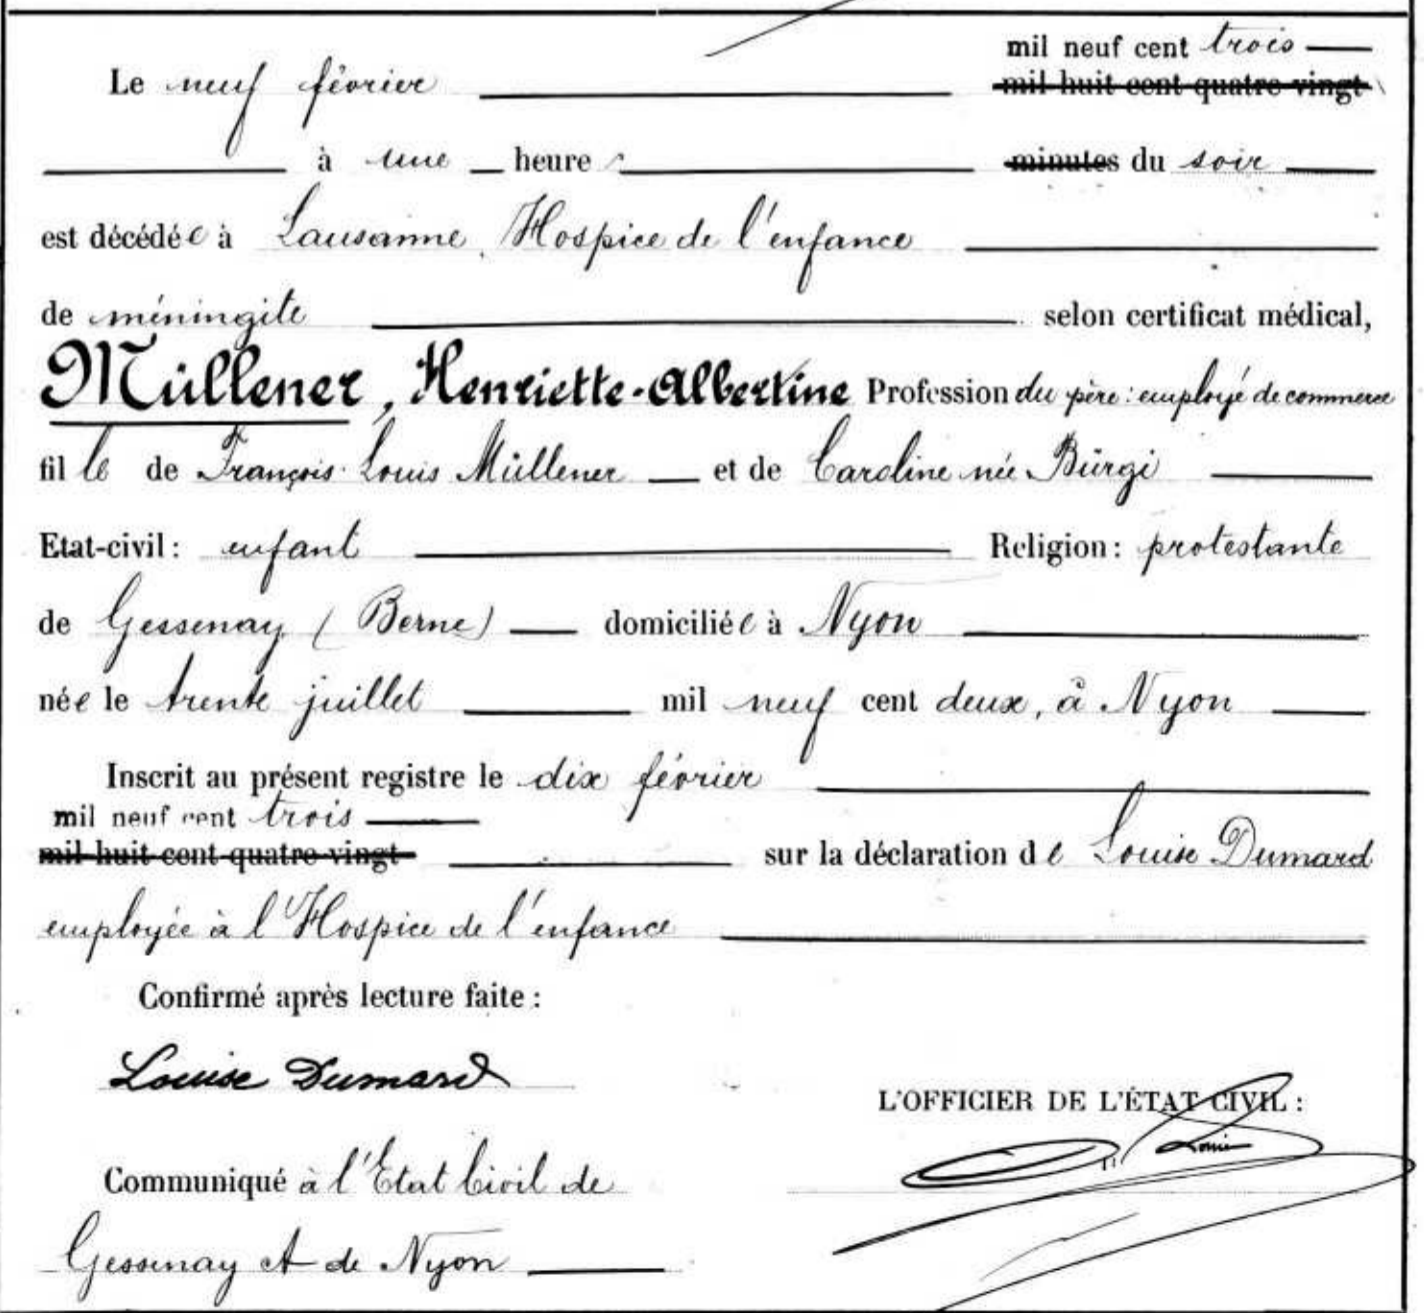 mil neuf cent trois
Le neuf février mil huit cent quatre-vingt
à une heure minutes du soir
est décédée à Lausanne, Hospice de l'enfance
de méningite selon certificat médical,
Müllener, Henriette-Albertine Profession du père: employé de commerce
fille de François-Louis Müllener et de Caroline née Bürgi
Etat-civil: enfant Religion: protestante
de Gessenay (Berne) domiciliée à Nyon
née le trente juillet mil neuf cent deux, à Nyon
Inscrit au présent registre le dix février
mil neuf cent trois
mil huit cent quatre-vingt sur la déclaration de Louise Dumard
employée à l'Hospice de l'enfance
Confirmé après lecture faite:
Louise Dumard
L'OFFICIER DE L'ÉTAT CIVIL:
Communiqué à l'Etat Civil de
Gessenay et de Nyon